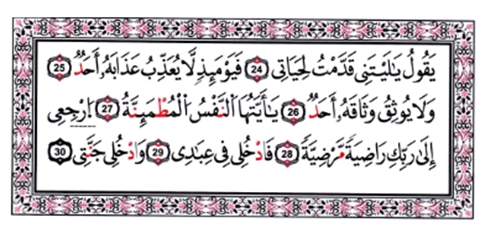 يَقُولُ يَٰلَيْتَنِى قَدَّمْتُ لِحَيَاتِى 24 فَيَوْمَئِذٍ لَّا يُعَذِّبُ عَذَابَهُۥٓ أَحَدٌ 25
وَلَا يُوثِقُ وَثَاقَهُۥٓ أَحَدٌ 26 يَٰٓأَيَّتُهَا ٱلنَّفْسُ ٱلْمُطْمَئِنَّةُ 27 ٱرْجِعِىٓ
إِلَىٰ رَبِّكِ رَاضِيَةً مَّرْضِيَّةً 28 فَٱدْخُلِى فِى عِبَٰدِى 29 وَٱدْخُلِى جَنَّتِى 30